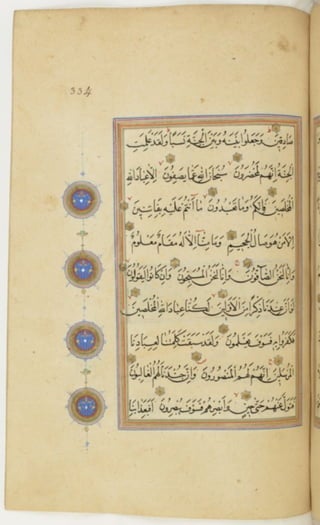 334
صادقين وجعلوا بينه وبين الجنة نسبا ولقد علمت
الجنة انهم لمحضرون سبحان الله عما يصفون الا عباد الله
المخلصين فانكم وما تعبدون ما انتم عليه بفاتنين
الا من هو صال الجحيم وما منا الا له مقام معلوم
وانا لنحن الصافون وانا لنحن المسبحون وان كانوا ليقولون
لو ان عندنا ذكرا من الاولين لكنا عباد الله المخلصين
فكفروا به فسوف يعلمون ولقد سبقت كلمتنا لعبادنا
المرسلين انهم لهم المنصورون وان جندنا لهم الغالبون
فتول عنهم حتى حين وابصرهم فسوف يبصرون افبعذابنا